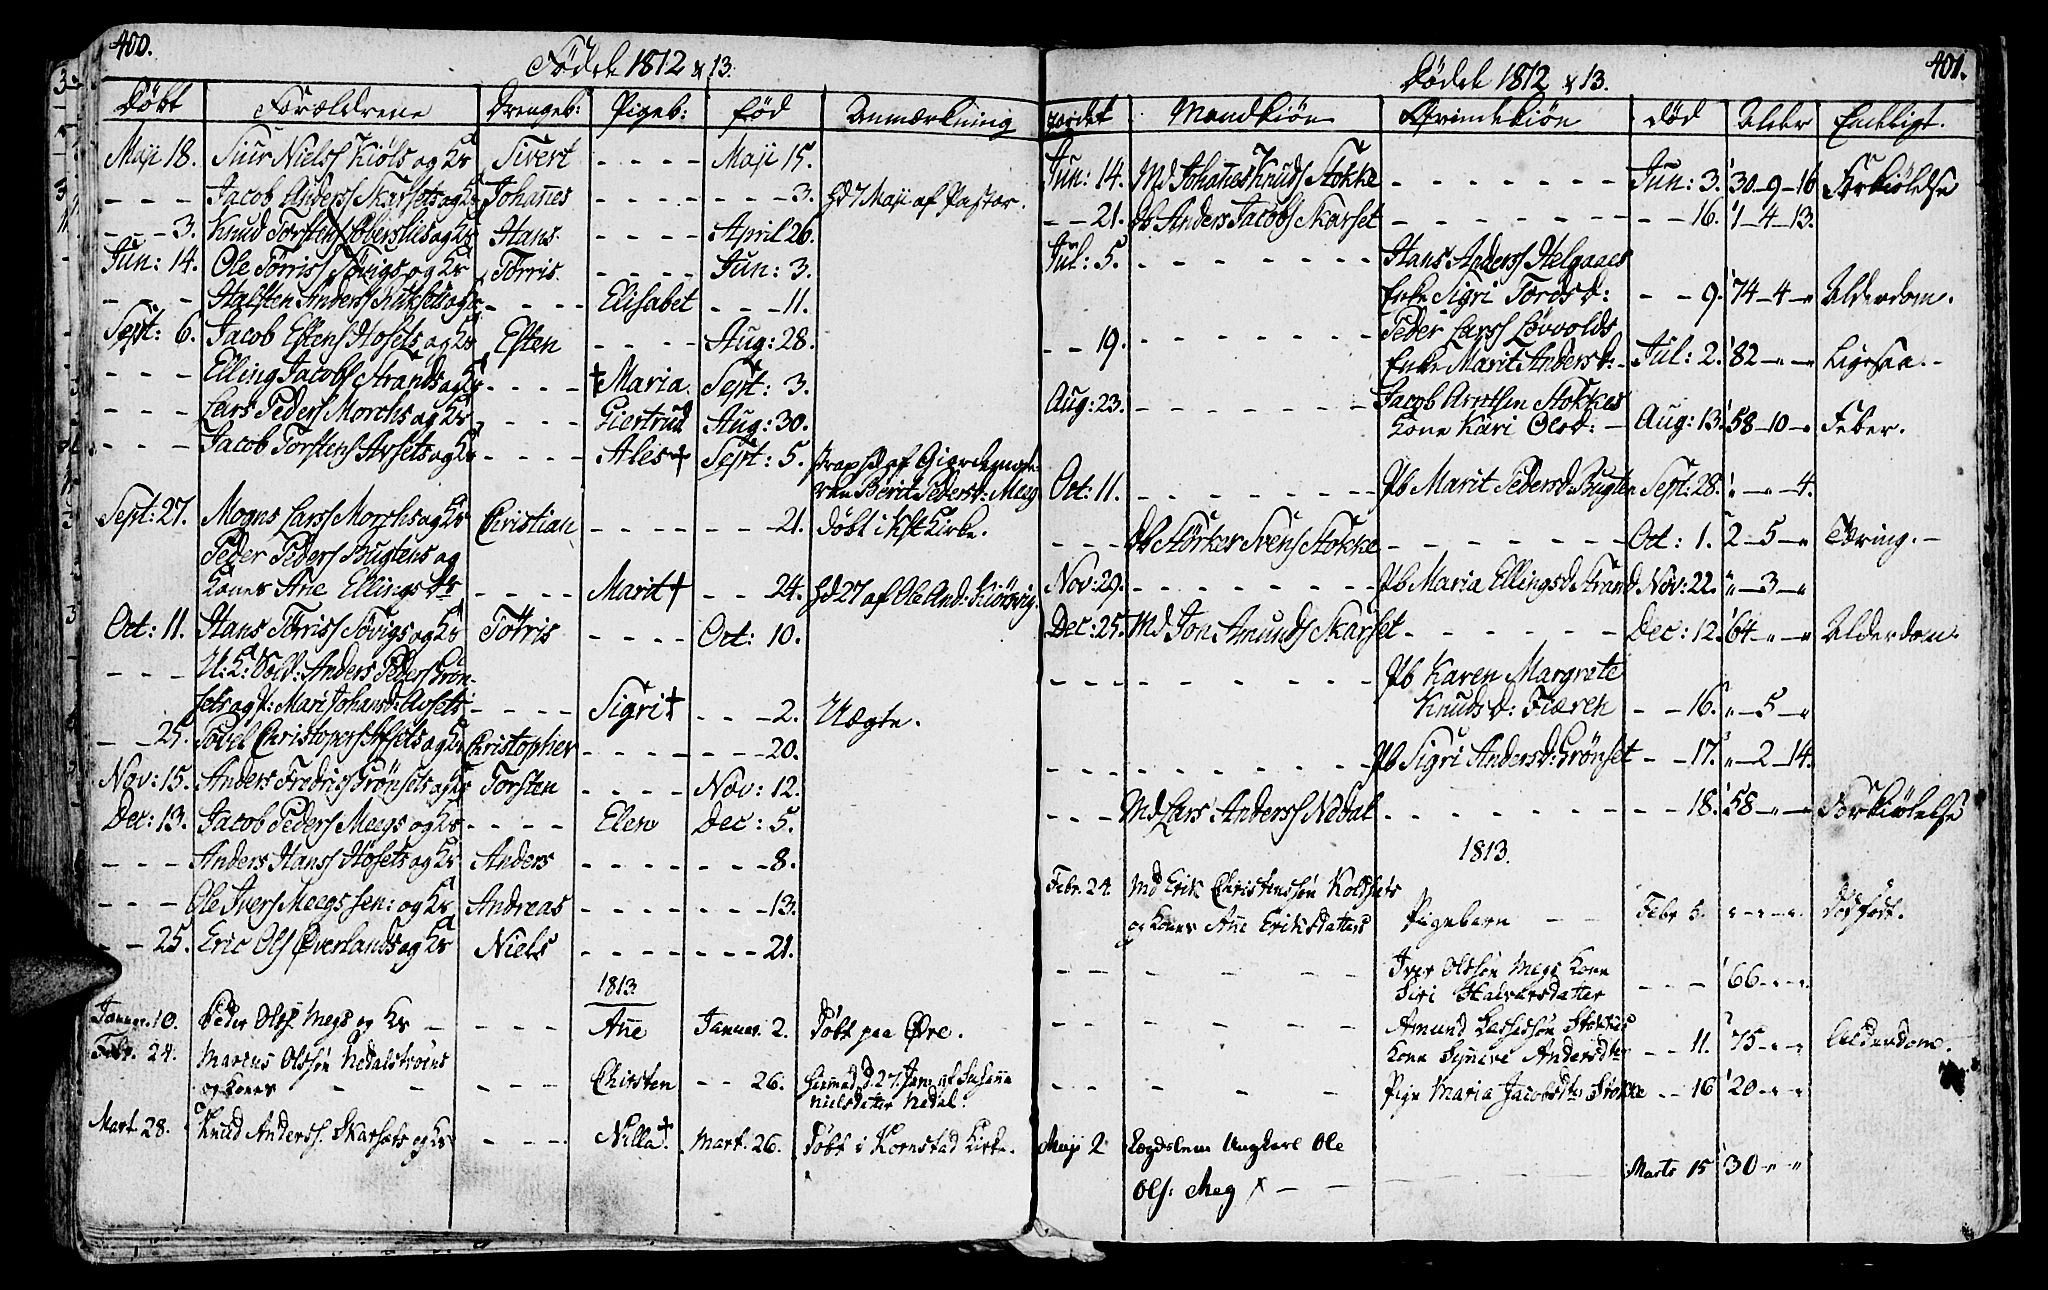 400.
Fødde 1812 & 13.
Døbt Forældrene Drengeb: Pigeb: fød Anmærkning
Maji 18. Siur Niels Kiøls og K Sivert - - - - Maji 15.
- - - Jacob Anders Skarsets og K Johañes - - - - - - - 3. HD 7 Maji af Pastor.
- - - 3. Knud Torstens og K Hans - - - - April 26.
Jun: 14. Ole Torris Søvigs og K Torris - - - - Jun: 3.
- - - Halsten Anders og K - - - - Elisabet - - - 11.
Sept: 6. Jacob Estens Hosets og K Esten - - - - Aug: 28.
- - - Elling Jacobs Strands og K - - - - † Maria Sept: 3.
- - - Lars Peders Morchs og K - - - - Giertrud Aug: 30.
- - - Jacob Torstens Arsets og K - - - - Ales † Sept: 5. af Giordemode-
ren Berit Pedersd: Meeg
Sept: 27. Mogns Lars Morchs og K Christian - - - - - - - 21. Døbt i Kirke.
Peder Peders Bugtens og
Kones Ane Ellings - - - - Marit † - - 24. HD 27 af Ole And:
Oct: 11. Hans Torris Søvigs og K Torris - - - - Oct: 10.
- - - U: K: Sold: Anders Peders Grøn-
sets og P: Mari Johansd: Arsets - - - - Sigri † - - - 2. Uægte.
- - 25. Povel Christophers Arsets og K Christopher - - - - - - - 20.
Nov: 15. Anders Fredrics Grønsets og K Torsten - - - - Nov: 12.
Dec: 13. Jacob Peders Meegs og K - - - - Elen Dec: 5.
- - - Anders Hans Høsets og K Anders - - - - - - - 8.
- - - Ole Ivers Meegs sen: og K Andreas - - - - - - - 13.
- - 25. Eric Ols Øverlands og K Niels - - - - - - - 21.
1813.
Januar. 10. Peder Olss. Megs og K - - - - - Añe Januar. 2. Døbt paa Øre.
Febr. 24. Marcus Olssøn Nedals
og Kones - - - Chirsten - - 26. hiemmed. d. 27. Jan af Susanna
Nielsdatter Nedal.
Mart. 28. Knud Anderss. Skarsets og K - - - - Nilla † Mart. 26. Døbt i Kornstad Kirke.
401.
Døde 1812 & 13.
Jordet Mandkiøn Qvindekiøn død Alder Endeligt.
Jun: 14. Md Johañes Knuds Stokke - - - - - - - Jun: 3. 30-9-16 Forkiølelse
- - 21. Db Anders Jacobs Skarset - - - - - - - - - 16. 1-4-13.
Jul: 5. - - - - - - - Hans Anders Helgaaes
Enke Sigri Tordsd: - - 9. 74-4-" Alderdom.
- - 19. - - - - - - - Peder Lars Løvvolds
Enke Marit Andersd: - Jul: 2. 82-"-" Ligesaa.
Aug: 23. - - - - - - - Jacob Arntsen Stokkes
Kone Kari Olsd: - Aug: 13. 58-10-" Feber.
Oct: 11. - - - - - - - Pb Marit Pedersd: Bugten Sept: 28. "-"-4.
- - - Db Størker Svens Stokke - - - - - - - Oct: 1. 2-5-" Tæring.
Nov: 29. - - - - - - - Pb Maria Ellingsd: Strand Nov: 22. "-3-"
Dec: 25. Md Jon Amunds Skarset - - - - - - - Dec: 12. 64-"-" Alderdom.
- - - - - - - - - Pb Karen Margrete
Knudsd: - - 16. "-5-"
- - - - - - - - - Pb Sigri Andersd: Grønset - - 17. "-2-14.
- - - Md Lars Anders Nedal - - - - - - - - - 18. 58-"-" Forkiølelse
1813.
Febr. 24 Md Erik Christenssøn
og Kones Añe Eriksdatters Pigebarn - - Febr 5. "-"-"-" Dødfødt.
- - - - - - Iver Olssøn Megs Kone
Siri Halvorsdatter - - - 66-"-"
- - - - - - Amund Stokkes
Kone Synneve Andersdtr - - 11. 75-"-" Alderdom.
- - - - - - Pige Maria Jacobsdtr Stokke - - 16 20-"-"
Maji 2 Lægdslem Ungkarl Ole
Ols: Meg - - - Marts 15 30-"-"